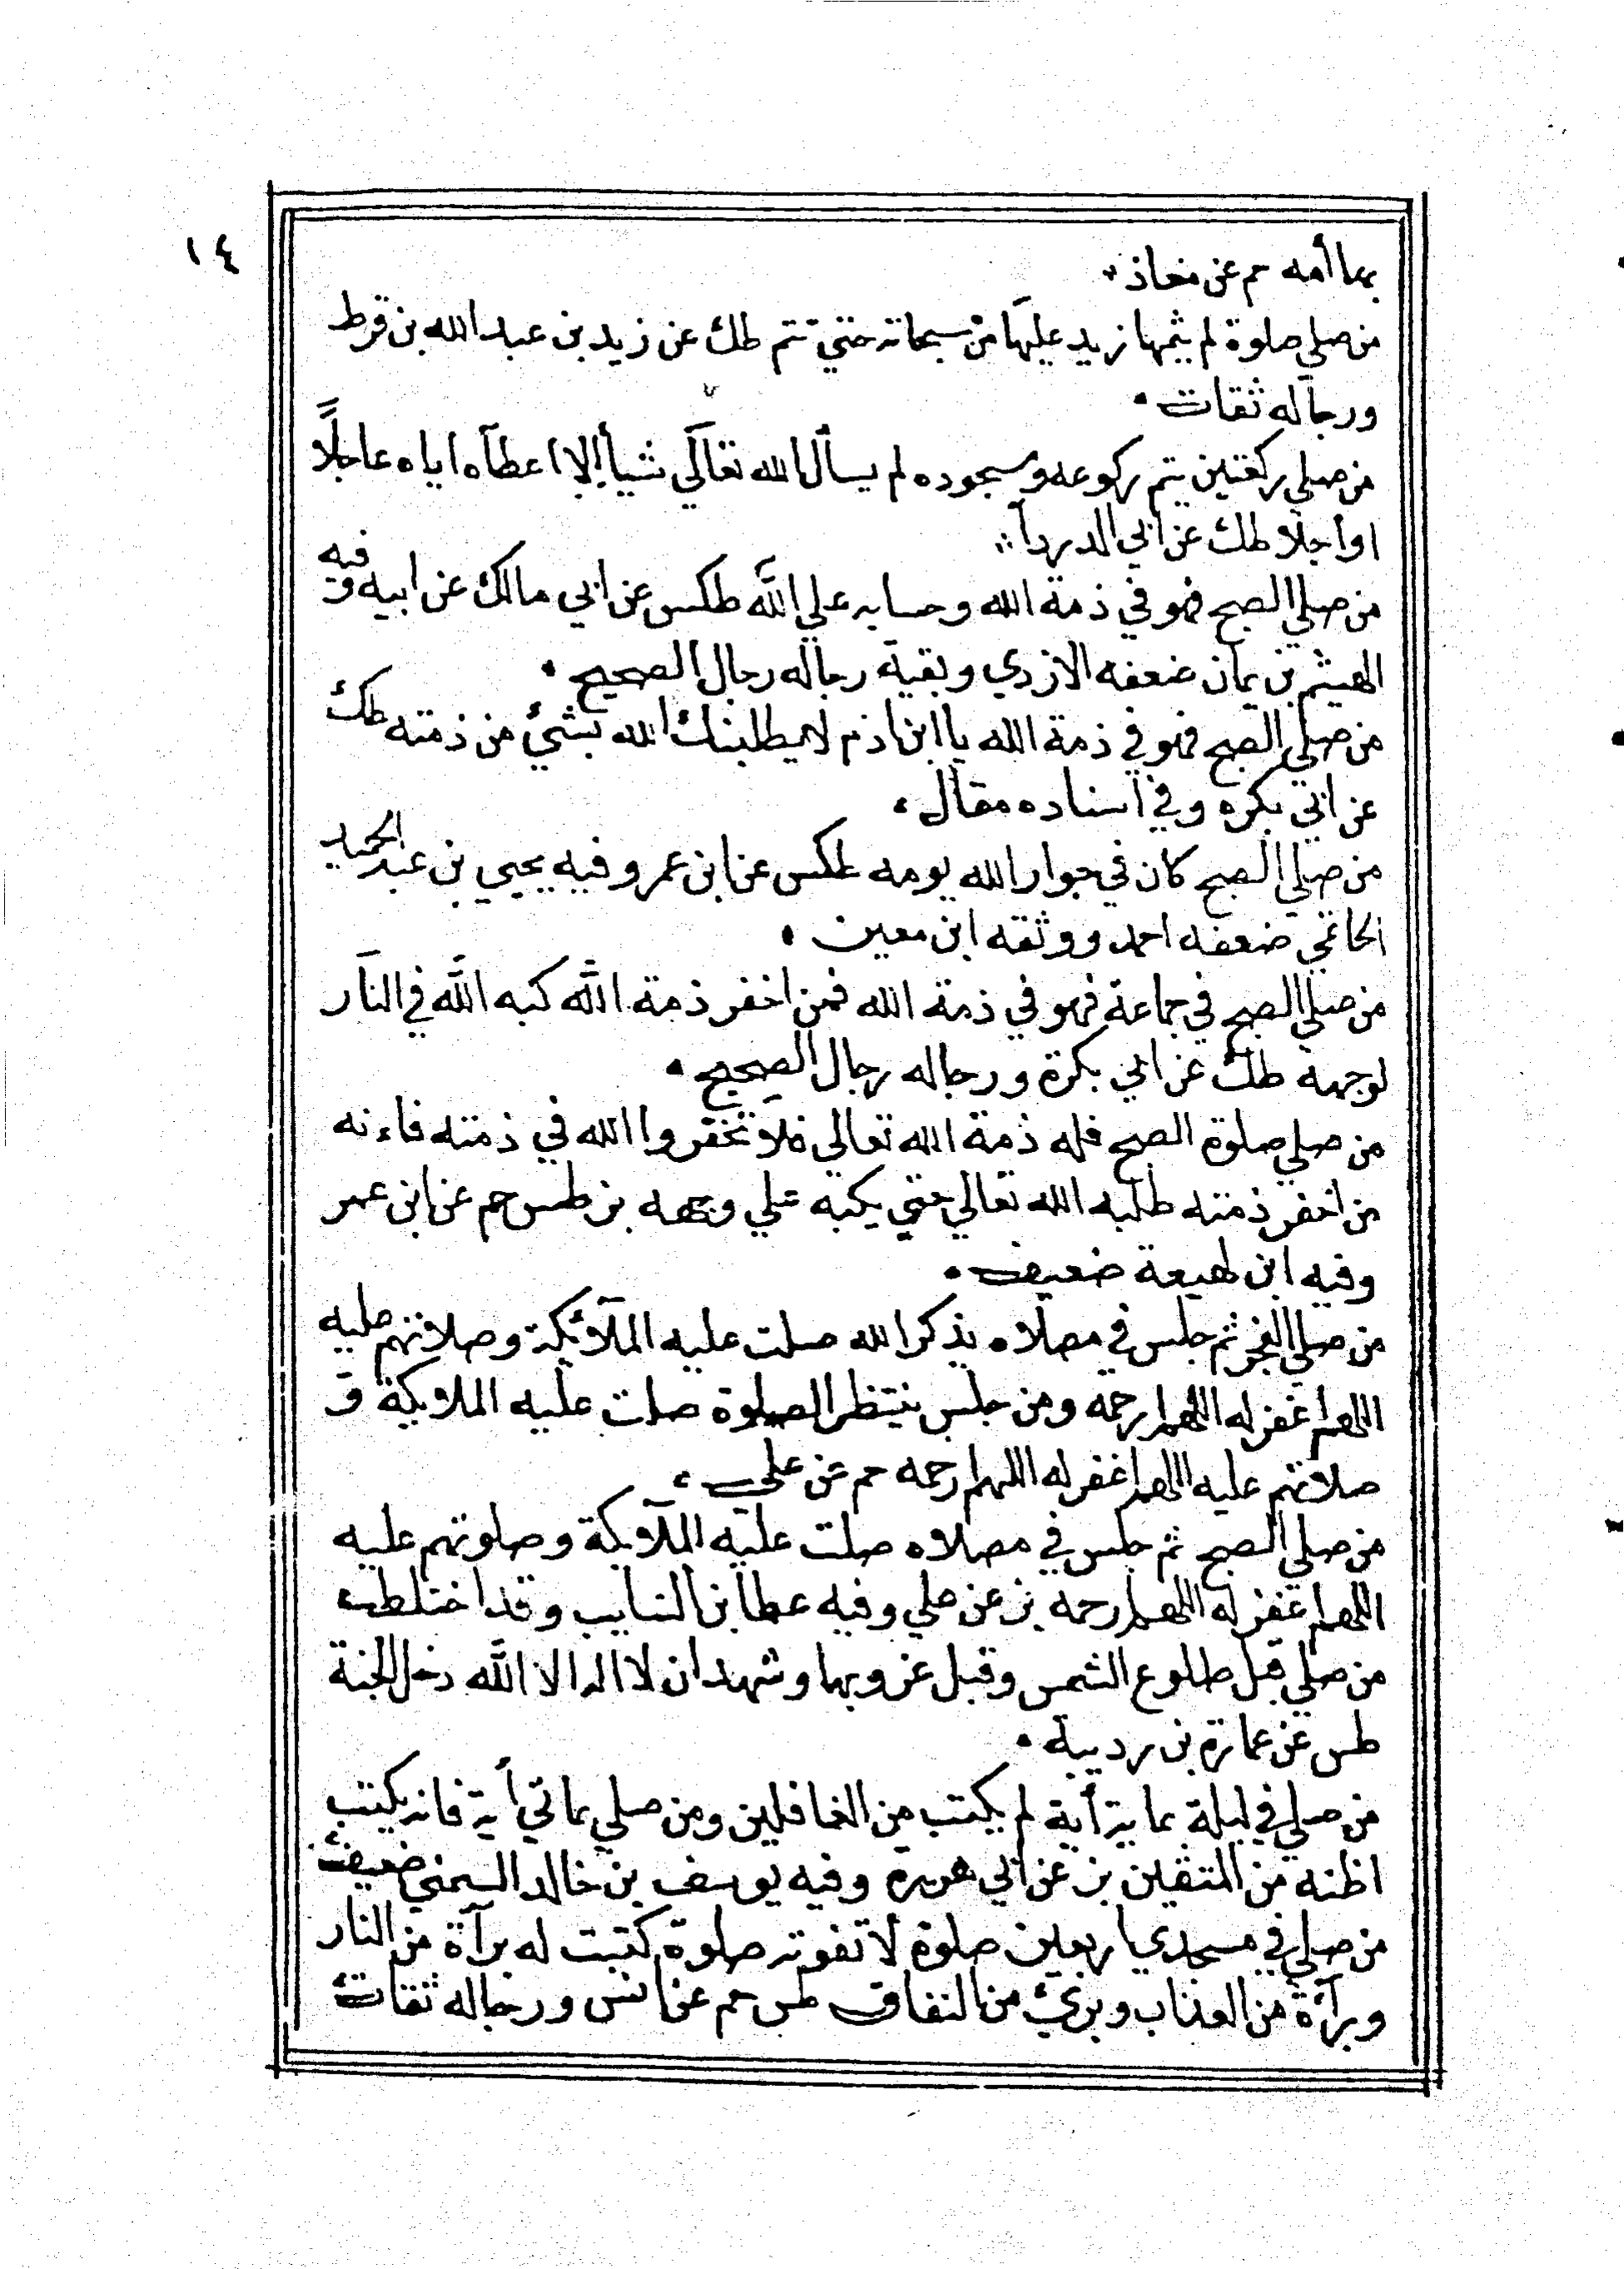 ١٤
بما أمه حم عن معاذ
من صلي صلوة لم يتمها زيد عليها من سبحاته حتي تتم طك عن زيد بن عبد الله بن قرط
ورجاله ثقات
من صلي ركعتين يتم ركوعه وسجوده لم يسأل الله تعالي شيأ إلا اعطاه اياه عاجلًا
او اجلا طك عن ابي الدردآ
من صلي الصبح فهو في ذمة الله وحسابه علي الله طكس عن ابي مالك عن ابيه وفيه
الهيثم بن يمان ضعفه الازدي وبقية رجاله رجال الصحيح
من صلي الصبح فهو في ذمة الله يا ابن ادم لا يطلبنك الله بشيء من ذمته طك
عن ابي بكره وفي اسناده مقال
من صلي الصبح كان في جوار الله يومه طكس عن ابن عمر وفيه يحيي بن عبد الحميد
الحاني ضعفه احمد ووثقه ابن معين
من صلي الصبح في جماعة فهو في ذمة الله فمن اخفر ذمة الله كبه الله في النار
لوجهه طك عن ابي بكرة ورجاله رجال الصحيح
من صلي صلوة الصبح فله ذمة الله تعالي فلا تخفروا الله في ذمته فاءنه
من اخفر ذمته طلبه الله تعالي حتي يكبه علي وجهه بز طس حم عن ابن عمر
وفيه ابن لهيعة ضعيف
من صلي الفجر ثم جلس في مصلاه يذكر الله صلت عليه الملآئكة وصلاتهم عليه
اللهم اغفر له اللهم ارحمه ومن جلس ينتظر الصلوة صلت عليه الملايكة و
صلاتهم عليه اللهم اغفر له اللهم ارحمه حم عن علي
من صلي الصبح ثم جلس في مصلاه صلت عليه الملآيكة وصلوتهم عليه
اللهم اغفر له اللهم ارحمه بز عن علي وفيه عطا بن السايب وقد اختلط
من صلي قبل طلوع الشمس وقبل غروبها وشهد ان لا اله الا الله دخل الجنة
طس عن عمارة بن رديبة
من صلي في ليلة بماية أية لم يكتب من الغافلين ومن صلي بماتي أية فانه يكتب
اظنه من المتقين بز عن ابي هريرة وفيه يوسف بن خالد السمتي ضعيف
من صلي في مسجدي اربعين صلوة لا تفوته صلوة كتبت له برآة من النار
وبرآءة من العذاب وبريء من النفاق طس حم عن انس ورجاله ثقات